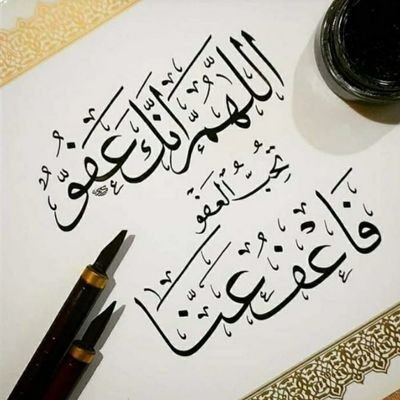 اللهُمَّ إنَّكَ عَفُوٌّ
تُحِبُّ العَفْو
فَاعْفُ عَنَّا